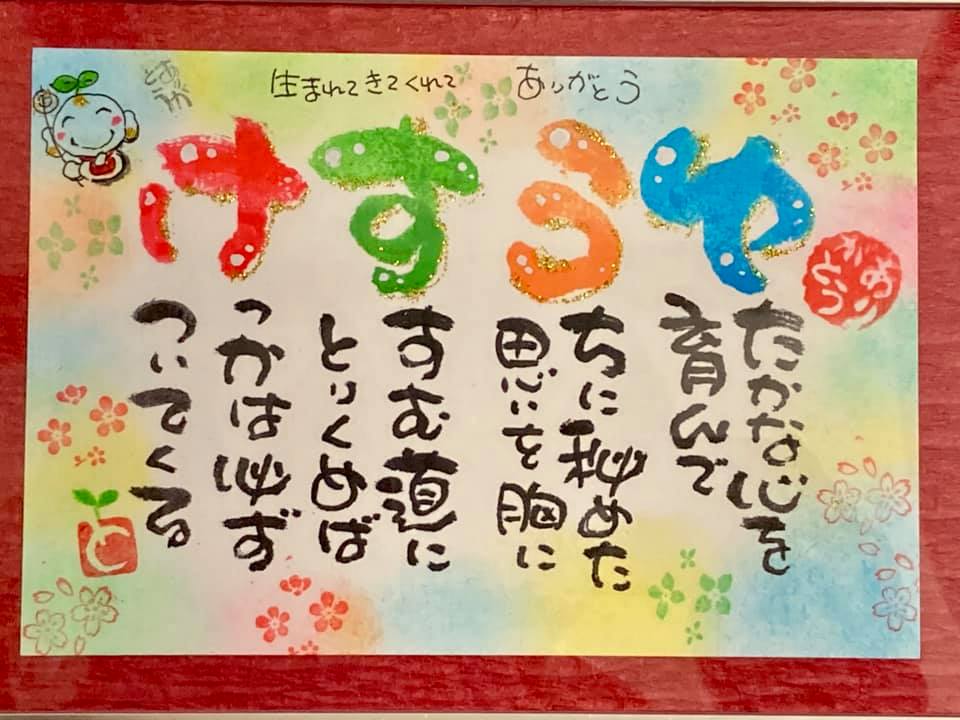 生まれてきてくれて ありがとう
ゆうすけ
たかな心を
育んで
ちに秘めた
思いを胸に
すむ道に
とりくめば
っかは必ず
ついてくる
ありがとう